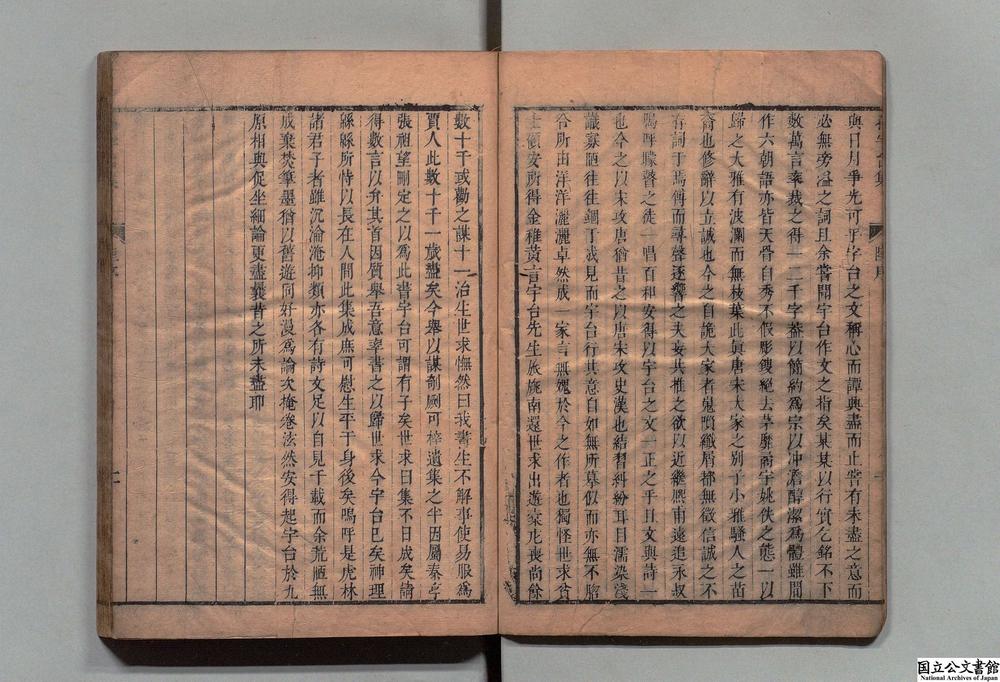 與日月爭光可乎宇台之文稱心而譚興盡而止嘗有未盡之意而
必無旁溢之詞且余嘗聞宇台作文之指矣某某以行實乞銘不下
數萬言率裁之得一二千字葢以簡約為宗以冲澹醇潔為體雖間
作六朝語亦皆天骨自秀不假彫鎪絕去茅靡嫵媚姚佚之態一以
歸之大雅有波瀾而無枝葉此眞唐宋大家之別子小雅騷人之苗
裔也修辭以立誠也今之自詭大家者鬼瑣纖屑都無徵信誠之不
存詞于焉傅而尋聲逐響之夫妄共推之欲以近繼熈甫遠追永叔
嗚呼矇瞽之徒一唱百和安得以宇台之文一正之乎且文與詩一
也今之以宋攻唐猶昔之以唐宋攻史漢也結習糾紛耳目濡染淺
識寡陋往往錮于我見而宇台行其意自如無所摹似而亦無不脗
合所由洋洋灑灑卓然成一家言無媿於今之作者也獨怪世求貧
士頭安所得金稚黃言宇台先生旅旐南還世求出遊豪庀喪尚餘
數十千或勸之謀十一治生世求憮然曰我書生不解事使易服為
賈人此數十千一歲盡矣今舉以謀剞劂可梓遺集之半因屬秦亭
張祖望刪定之以為此書宇台可謂有子矣世求曰集不日成矣請
得數言以弁其首因質舉吾意率書之以歸世求今宇台已矣神理
緜緜所恃以長在人間此集成庶可慰生平于身後矣嗚呼是虎林
諸君子者雖沉淪淹抑類亦各有詩文足以自見千載而余荒陋無
成棄焚筆墨猶以舊遊同好漫為論次掩卷泫然安得起宇台於九
原相與促坐細論更盡曩昔之所未盡耶
國立公文書館
National Archives of Japan